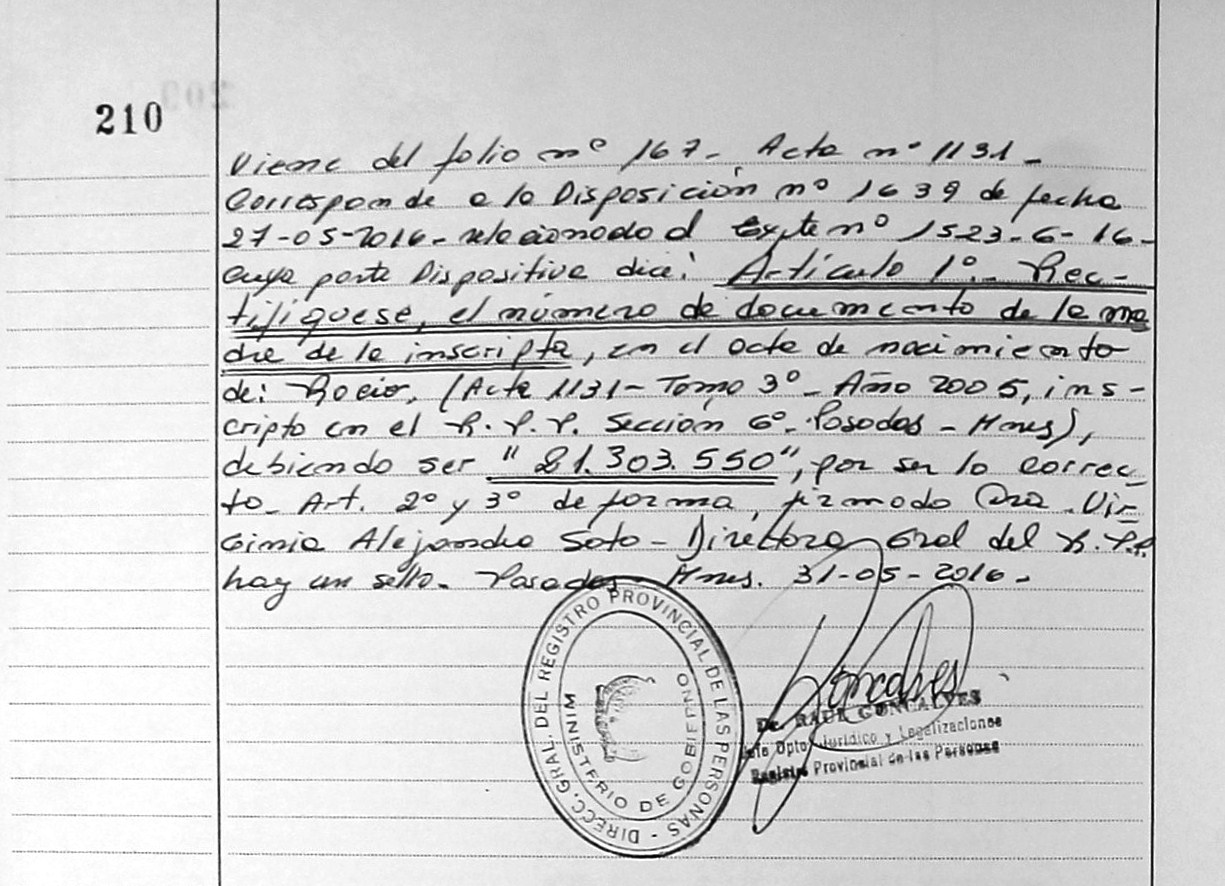 210
Viene del folio nº 167-. Acta nº 1131-
Corresponde a la Disposición nº 1639 de fecha
27-05-2016- relacionado al Expte nº 1523-6-16-
cuya parte Dispositiva dice: Artículo 1º.- Rec-
tifíquese, el número de documento de la ma
dre de la inscripta, en el acta de nacimiento
de: Rocio, (Acta 1131- Tomo 3º- Año 2005, ins-
cripto en el R.P.P. Sección 6º- Posadas - Mnes),
debiendo ser "21.303.550", por ser lo correc
to- Art. 2º y 3º de forma, firmado Dra. Vir-
ginia Alejandra Soto - Directora Gral del R.P.P.
hay un sello- Posadas Mnes. 31-05-2016-
DIRECC. GRAL. DEL REGISTRO PROVINCIAL DE LAS PERSONAS -
MINISTERIO DE GOBIERNO
Goncalves
Dr. RAUL GONCALVES
Jefe Dpto. Jurídico y Legalizaciones
Registro Provincial de las Personas